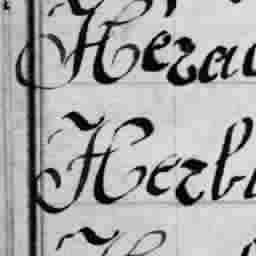 Herac
Herbi
H